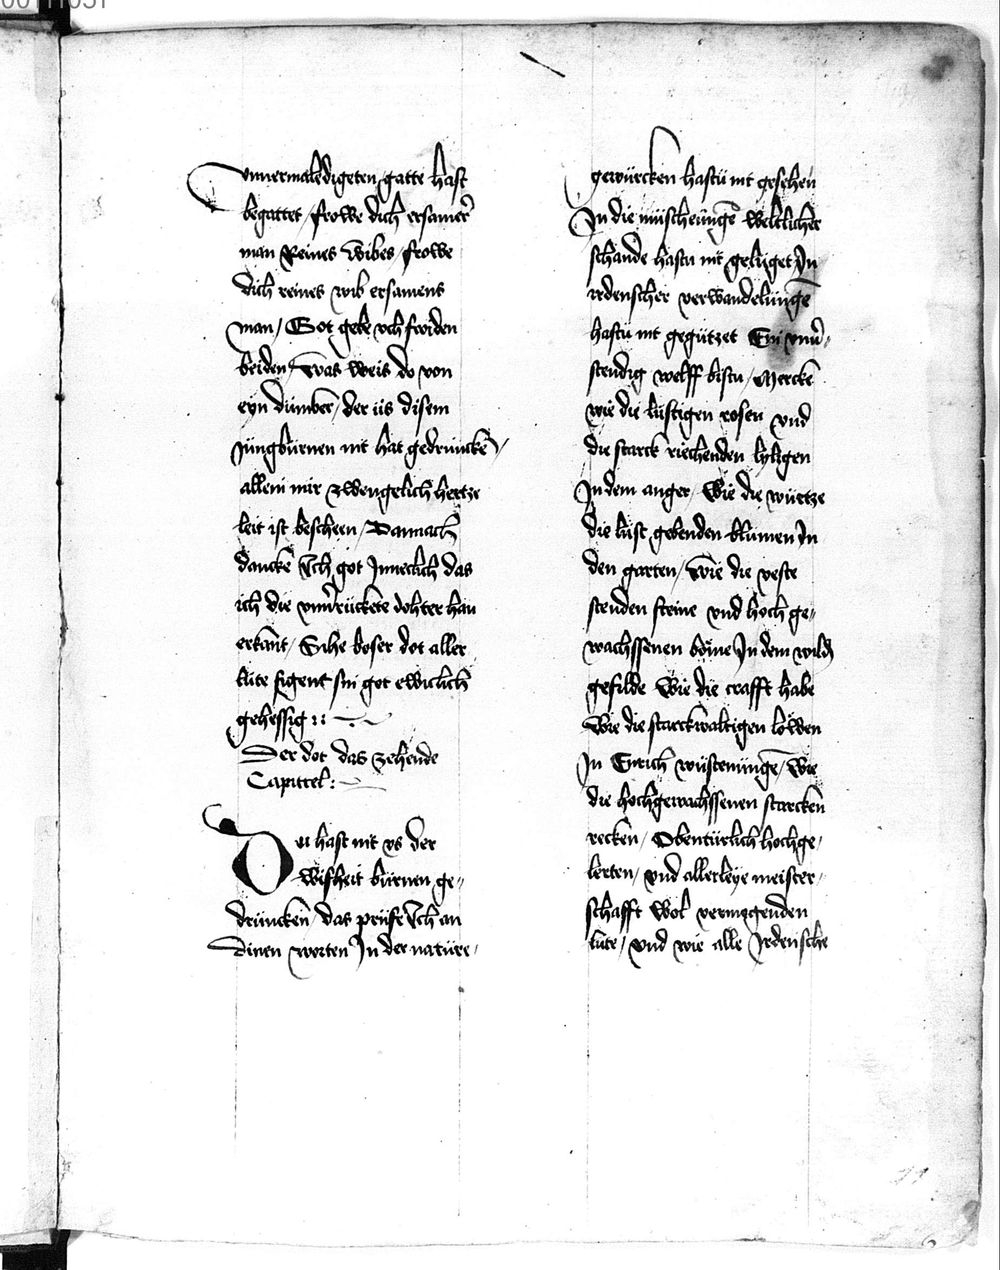 vnuermaledigeten gatte hast
begattet / frowe dich ersamer
man Reines wibes / frowe
dich reines wib ersamens
man / Got gebe vch froiden
beiden / Was weis do von
eyn dummer / der us disem
Jungburnen nit hat gedruncken /
allein mir zwengelich hertze
leit ist bescheen / Dannach
dancke Ich got Jnneclich das
ich die vnuerruckete dohter han
erkant / Sihe boser dot aller
lute figent sin got ewiclich
gehessig
Der dot das zehende
Capittel :
Du hast nit vs der
wisheit burnen ge„
druncken / das prufe Ich an
Dinen worten Jn der nature /
gewurcken hastu nit gesehen
Jn die muschunge weltlicher
schande hastu nit geluget Jn
irdenscher verwandelunge
hastu nit gegutzet Ein vnuer
stendig welff bistu / Mercke
wie die lustigen rosen vnd
die starck riechenden lyligen
Jn dem anger / Wie die wurtze
die lust gebenden blumen Jn
den garten / Wie die veste
stenden steine vnd hoch ge„
wachssenen bome Jn dem wild
gefilde Wie die crafft habe
Wie die starckwaltigen lowen
Jn wustenunge / Wie
die hochgewachssenen starcken
recken / Obenturlich hochge„
lerten / vnd allerleye meister„
schafft wol vermogenden
lute / vnd wie alle Jrdensche